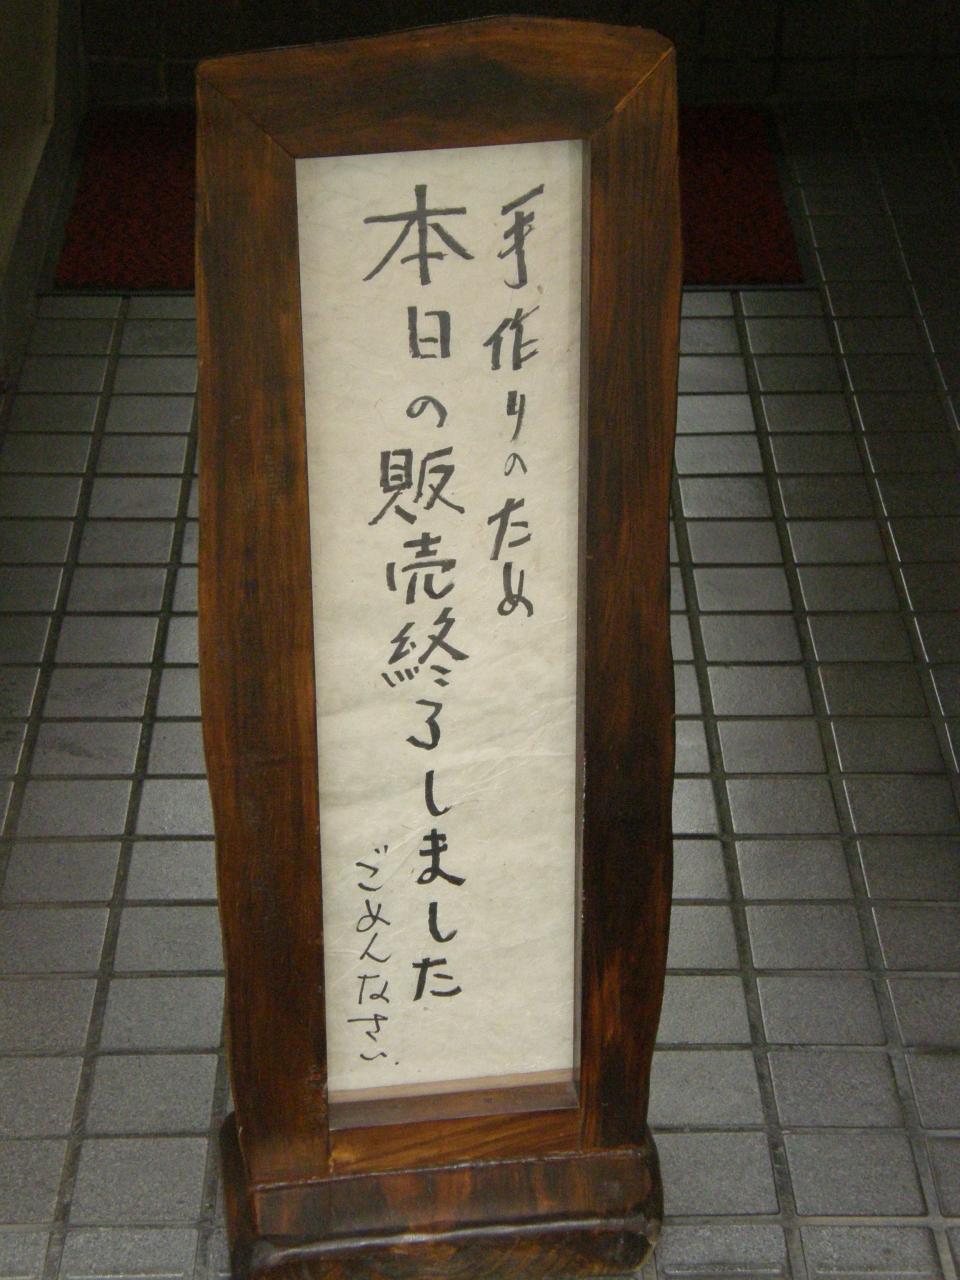 手作りのため
本日の販売終了しました
ごめんなさい.